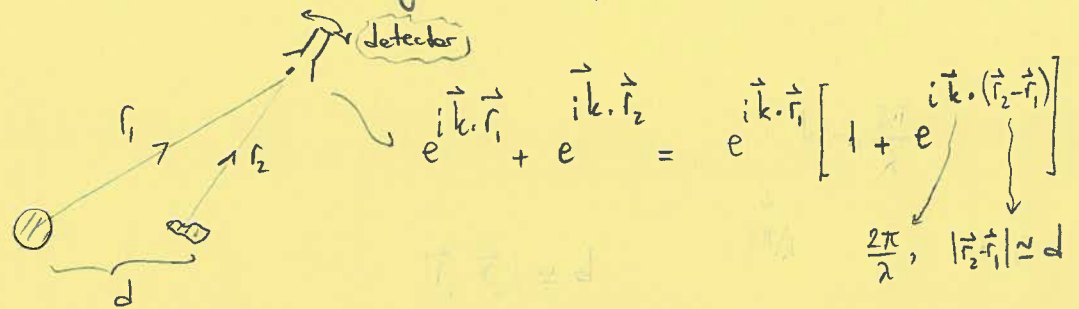 detector
r₁
r₂
d
e^{i\vec{k}\cdot\vec{r}_1} + e^{i\vec{k}\cdot\vec{r}_2} = e^{i\vec{k}\cdot\vec{r}_1} [ 1 + e^{i\vec{k}\cdot(\vec{r}_2-\vec{r}_1)} ]
\frac{2π}{λ}, |\vec{r}_2-\vec{r}_1| ≃ d